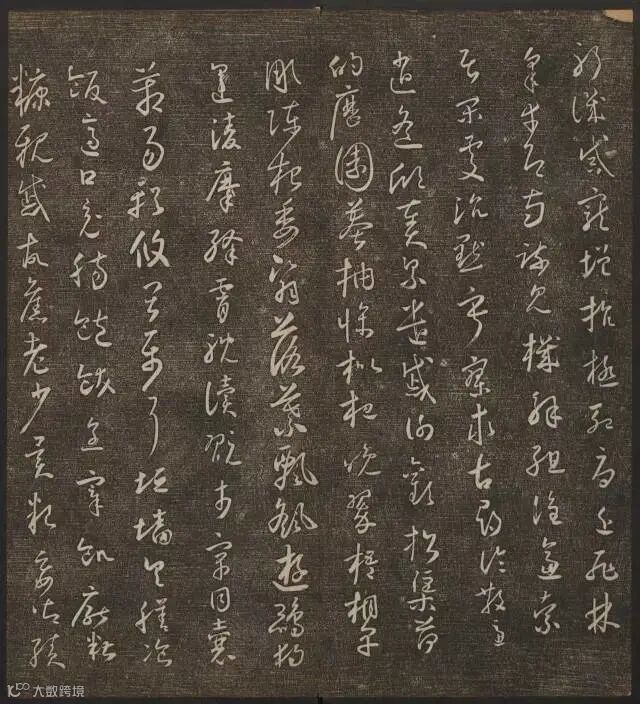 躬譏誡寵增抗極殆辱近恥林
皋幸即兩疏見機解組誰逼索
居閑處沉默寂寥求古尋論散慮
逍遙欣奏累遣慼謝歡招渠荷
的歷園莽抽條枇杷晚翠梧桐早
凋陳根委翳落葉飄颻遊鵾獨
運凌摩絳霄耽讀翫市寓目囊
箱易輶攸畏屬耳垣墻具膳飡
飯適口充腸飽飫烹宰飢厭糟
糠親戚故舊老少異粮妾御績
大数跨境